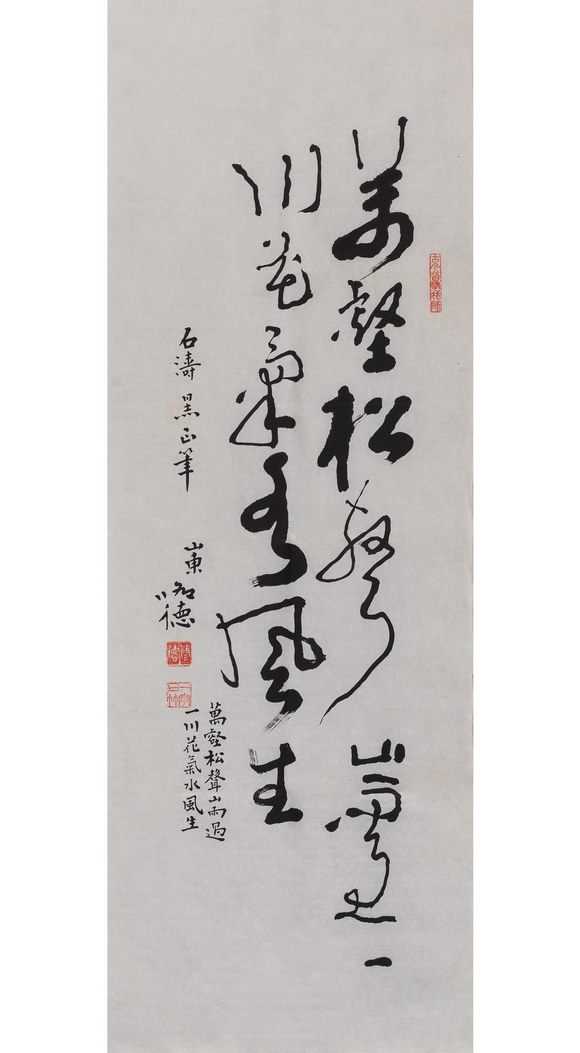 萬壑松聲山雨過一
川花氣水風生
石濤 正筆
山東 德
萬壑松聲山雨過
一川花氣水風生